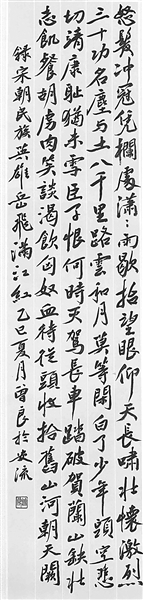 怒髮冲冠凭欄處瀟〻雨歇抬望眼仰天長嘯壯懷激烈
三十功名塵与土八千里路雲和月莫等閑白了少年頭空悲
切清康耻猶未雪臣子恨何時灭駕長車踏破賀蘭山缺壯
志飢餐胡虜肉笑談渴飲匈奴血待從頭收拾舊山河朝天闕
錄宋朝民族英雄岳飛滿江紅乙巳夏月曾良於安流